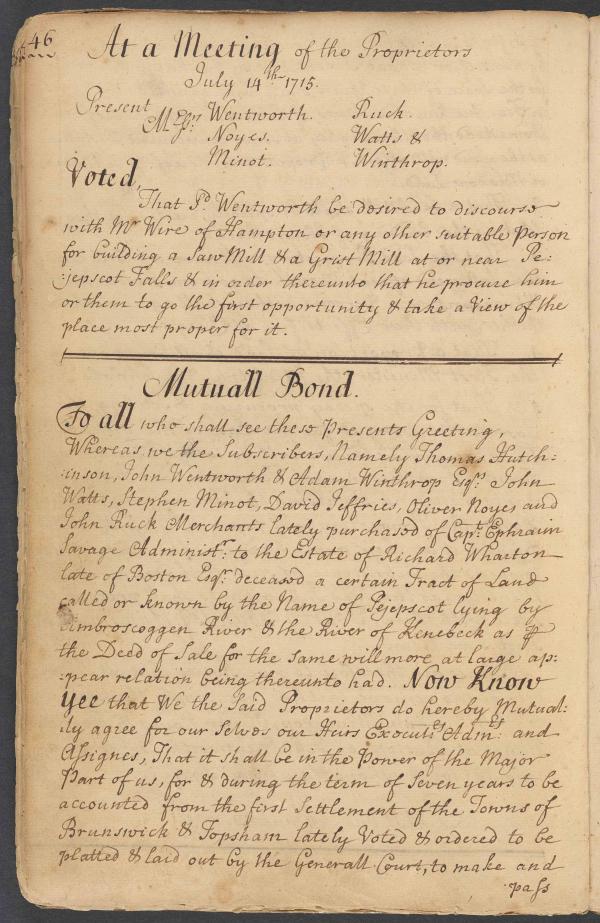 46
At a Meeting of the Proprietors
July 14th 1715.
Present
Messrs Wentworth. Ruck.
Noyes. Watts &
Minot. Winthrop.
Voted,
That Sd Wentworth be desired to discourse
with Mr Wire of Hampton or any other suitable Person
for building a Saw Mill & a Grist Mill at or near Pe:
:jepscot Falls & in order thereunto that he procure him
or them to go the first opportunity & take a View of the
place most proper for it.
Mutuall Bond.
To all who shall see these Presents Greeting,
Whereas we the Subscribers, Namely Thomas Hutch:
:inson, John Wentworth & Adam Winthrop Esqrs John
Watts, Stephen Minot, David Jeffries, Oliver Noyes and
John Ruck Merchants lately purchased of Capt. Ephraim
Savage Administr. to the Estate of Richard Wharton
late of Boston Esqr. deceased a certain Tract of Land
called or known by the Name of Pejepscot lying by
Ambroscoggen River & the River of Kenebeck as ꝑ
the Deed of Sale for the same will more at large ap:
:pear relation being thereunto had. Now Know
Yee that We the said Proprietors do hereby Mutual:
:ly agree for our Selves our Heirs Executrs Admrs: and
Assignes, That it shall be in the Power of the Major
Part of us, for & during the term of Seven years to be
accounted from the first Settlement of the Towns of
Brunswick & Topsham lately Voted & ordered to be
platted & laid out by the Generall Court, to make and
pass